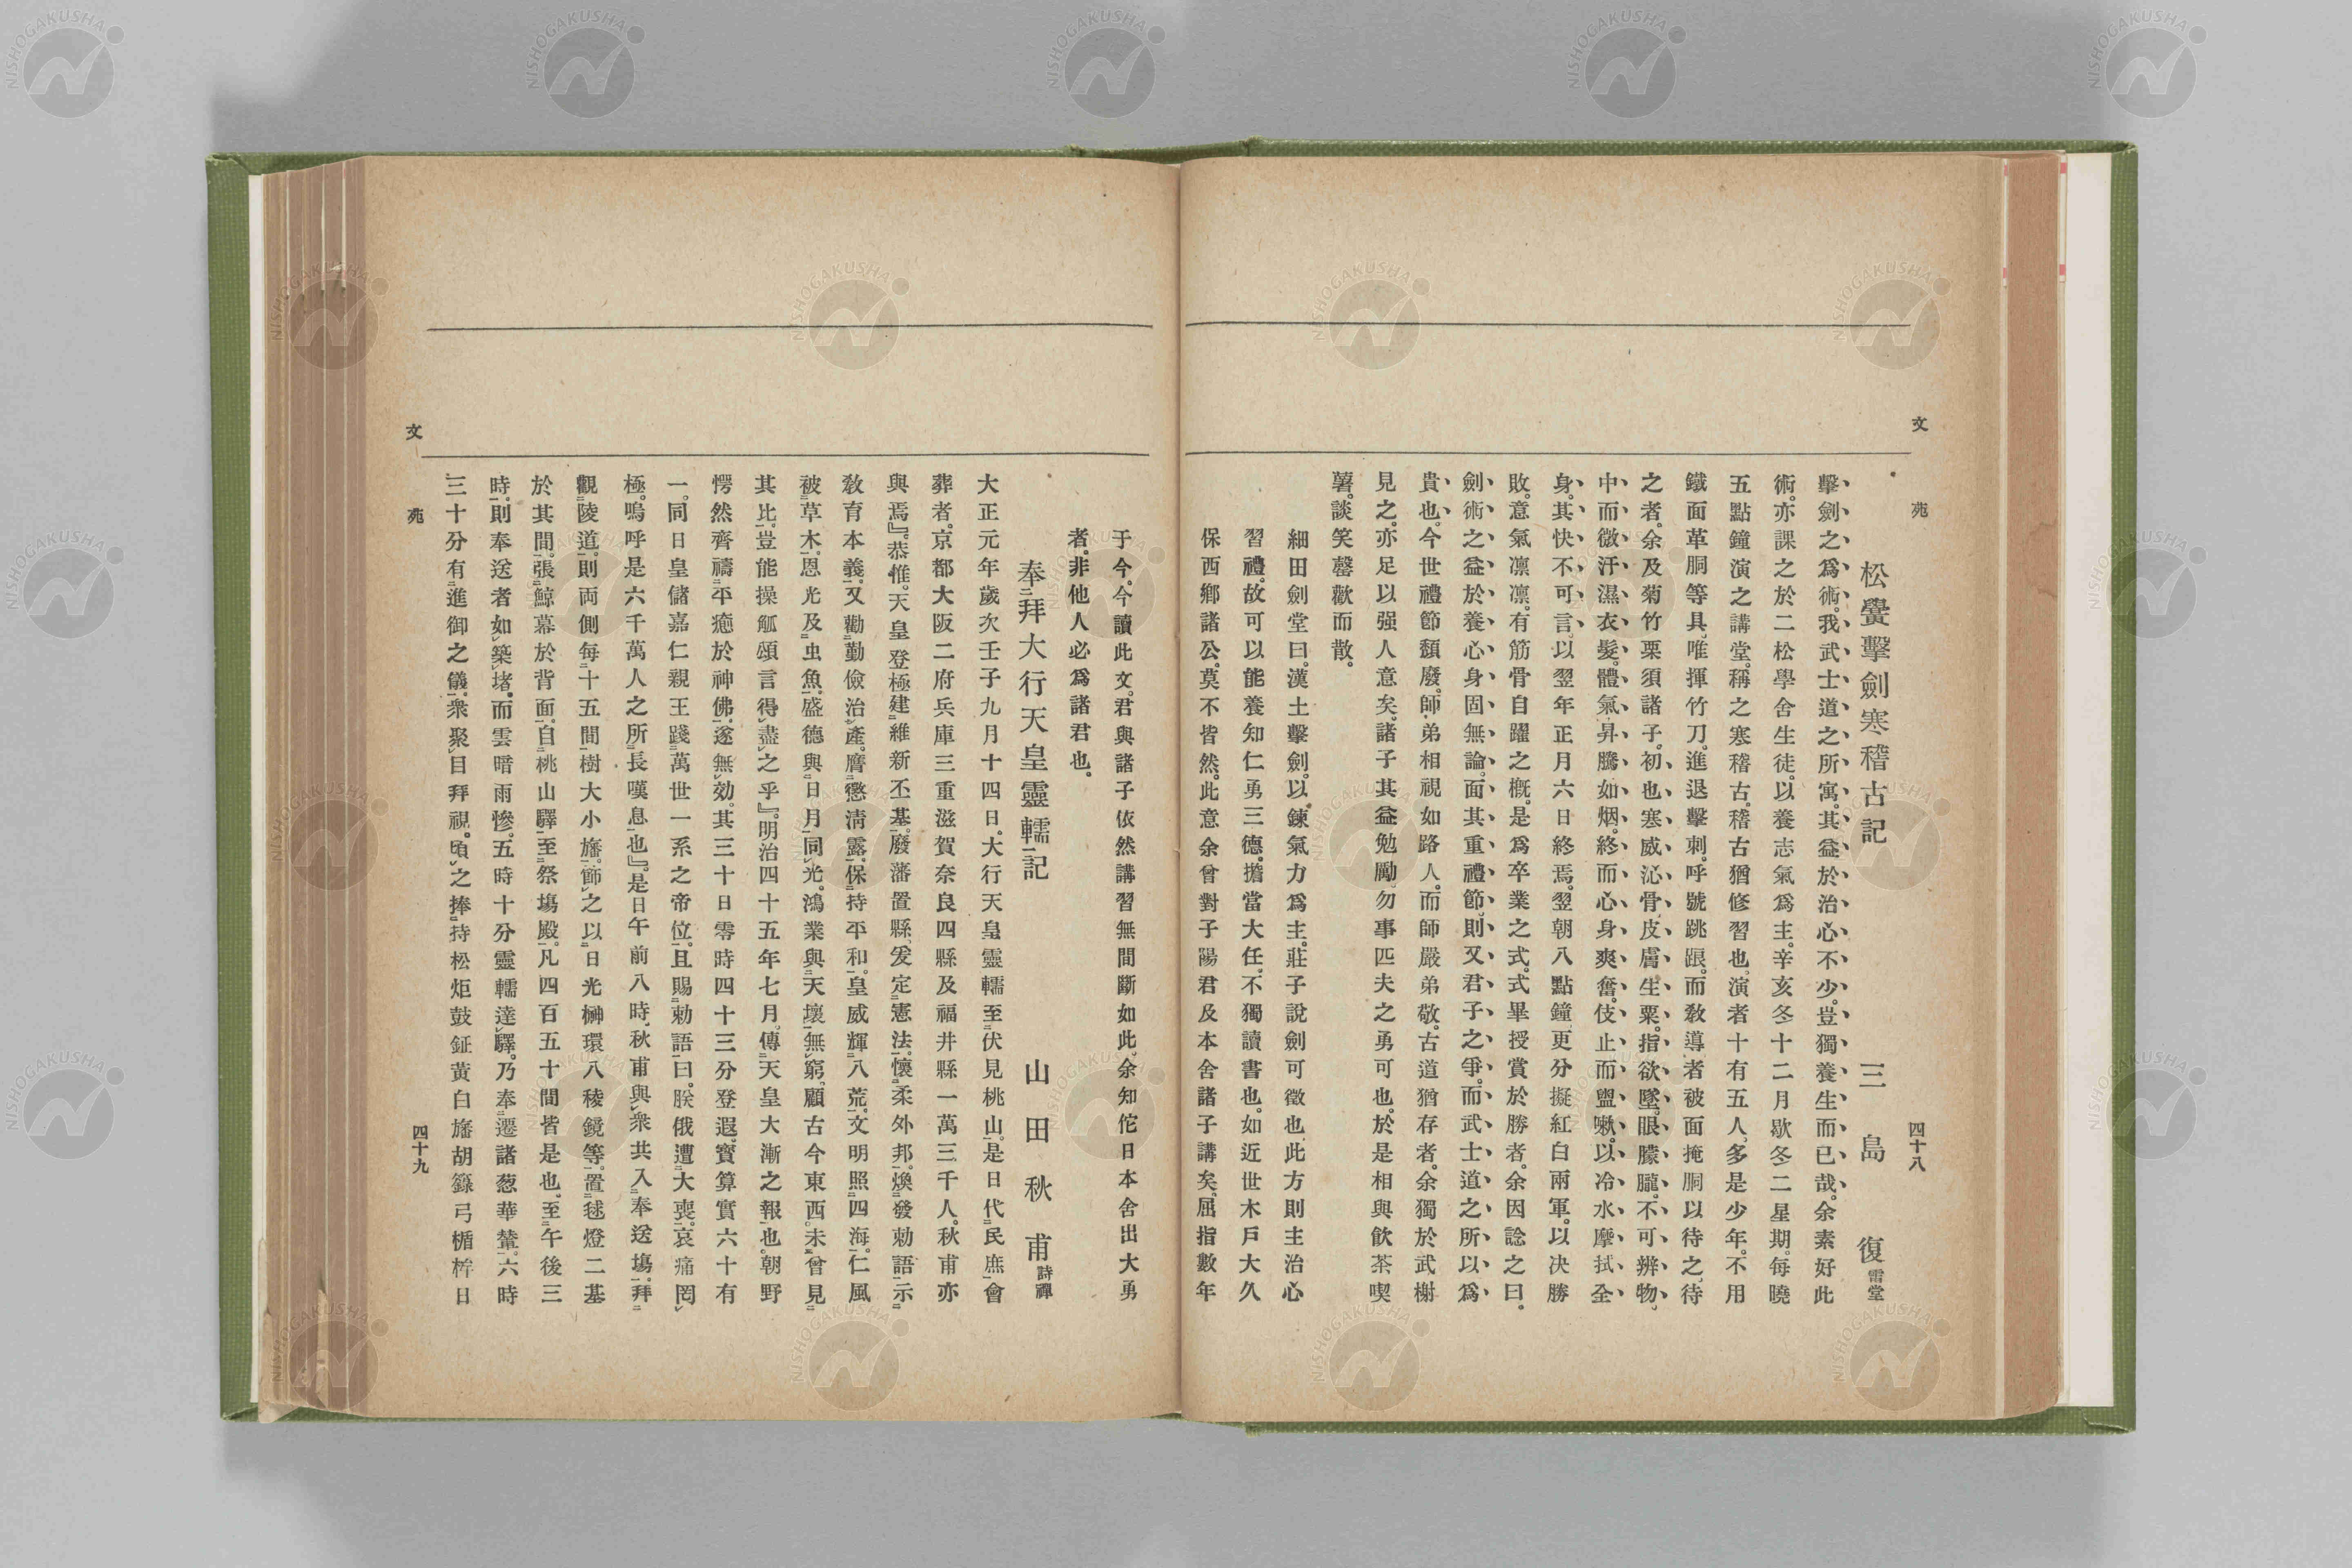 文苑
四十八
松黌擊劍寒稽古記　三島復雷堂
擊劍之爲術。我武士道之所寓。其益於治心不少。豈獨養生而已哉。余素好此
術。亦課之於二松學舍生徒。以養志氣爲主。辛亥冬十二月歇冬二星期。每曉
五點鐘演之講堂。稱之寒稽古。稽古猶修習也。演者十有五人。多是少年。不用
鐵面革胴等具。唯揮竹刀。進退擊刺。呼號跳踉。而敎導者被面掩胴以待之。待
之者。余及菊竹栗須諸子。初也寒威沁骨、皮膚生粟。指欲墜。眼朦朧。不可辨物。
中而微汗濕衣髮。體氣昇騰如烟。終而心身爽奮。伎止而盥嗽。以冷水摩拭全
身。其快不可言。以翌年正月六日終焉。翌朝八點鐘、更分擬紅白兩軍。以决勝
敗。意氣凛凛。有筋骨自躍之槪。是爲卒業之式。式畢授賞於勝者。余因諗之曰。
劍術之益於養心身固無論。而其重禮節。則又君子之爭。而武士道之所以爲
貴也。今世禮節頽廢。師弟相視如路人。而師嚴弟敬。古道猶存者。余獨於武榭
見之。亦足以强人意矣。諸子其益勉勵。勿事匹夫之勇可也。於是相與飮茶喫
薯。談笑罄歡而散。
細田劍堂曰。漢土擊劍。以鍊氣力爲主。莊子說劍可徵也、此方則主治心
習禮。故可以能養知仁勇三德。擔當大任。不獨讀書也。如近世木戶大久
保西鄕諸公。莫不皆然。此意余曾對子陽君及本舍諸子講矣。屈指數年
于今。今讀此文。君與諸子依然講習無間斷如此。余知佗日本舍出大勇
者。非他人必爲諸君也。
奉拜大行天皇靈轜記　山田秋甫詩禪
大正元年歲次壬子九月十四日。大行天皇靈轜至伏見桃山。是日代民庶會
葬者。京都大阪二府兵庫三重滋賀奈良四縣及福井縣一萬三千人。秋甫亦
與焉』。恭惟。天皇登極建維新丕基。廢藩置縣、爰定憲法。懷柔外邦。煥發勅語示
敎育本義。又勸勤儉治產。膺懲淸露。保持平和。皇威輝八荒。文明照四海。仁風
被草木。恩光及虫魚。盛德與日月同光。鴻業與天壤無窮。顧古今東西。未曾見
其比。豈能操觚頌言得盡之乎』。明治四十五年七月。傳天皇大漸之報也。朝野
愕然齊禱平癒於神佛。遂無効。其三十日零時四十三分登遐。寳算實六十有
一。同日皇儲嘉仁親王踐萬世一系之帝位。且賜勅語曰。朕俄遭大喪。哀痛罔
極。嗚呼是六千萬人之所長嘆息也』。是日午前八時。秋甫與衆共入奉送場。拜
觀陵道。則両側每十五間樹大小旛。節之以日光榊環八稜鏡等。置毬燈二基
於其間。張鯨幕於背面。自桃山驛至祭塲殿。凡四百五十間皆是也。至午後三
時。則奉送者如築堵。而雲暗雨慘。五時十分靈轜達驛。乃奉遷諸葱華輦。六時
三十分有進御之儀。衆聚目拜視。頃之捧持松炬鼓鉦黃白旛胡籙弓楯桙日
文苑
四十九